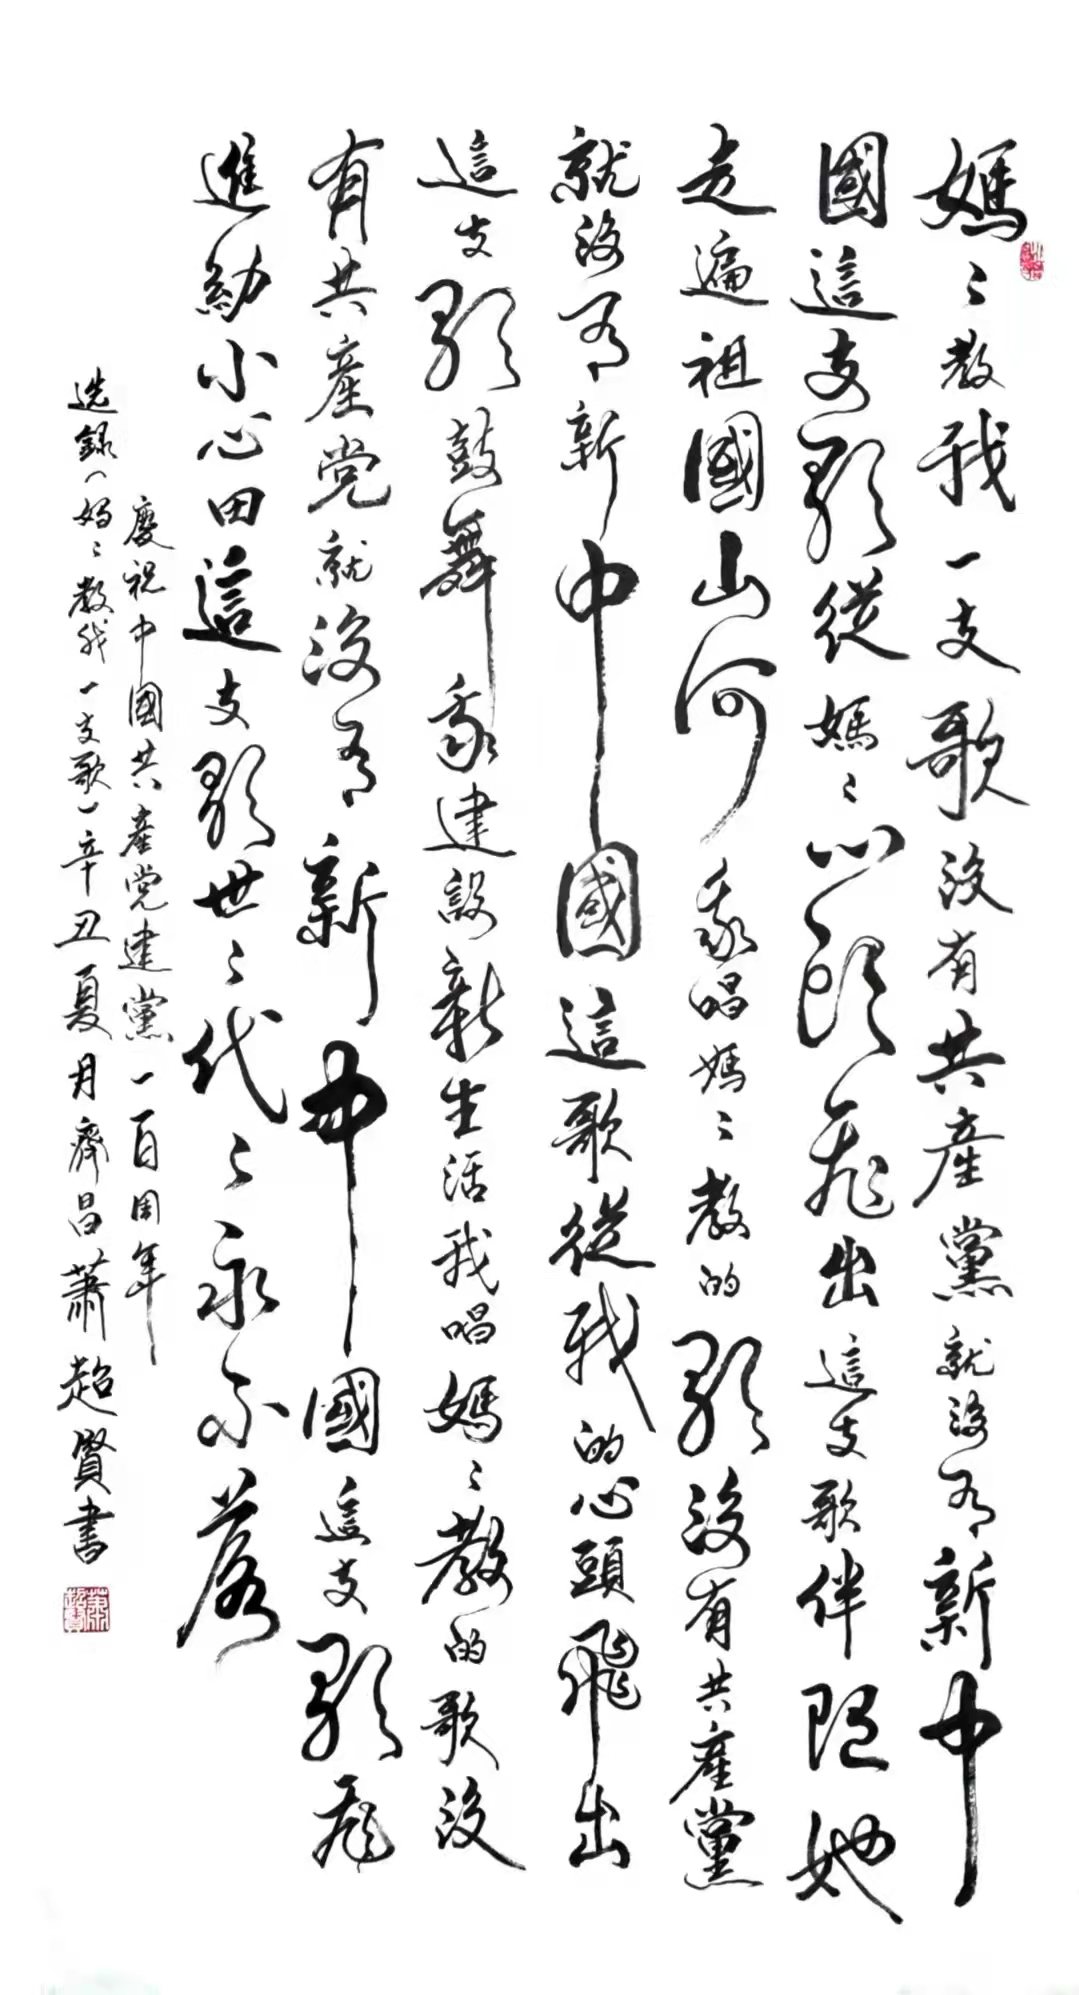 媽〻教我一支歌没有共産黨就没有新中
國這支歌從媽〻心頭飛出這支歌伴随她
走遍祖國山河我唱媽〻教的歌没有共産黨
就没有新中國這歌從我的心頭飛出
這支歌鼓舞我建設新生活我唱媽〻教的歌没
有共産党就没有新中國這支歌飛
進幼小心田這支歌世〻代〻永不落
慶祝中國共產党建黨一百周年
选録（妈〻教我一支歌）辛丑夏月齊昌蕭超賢書